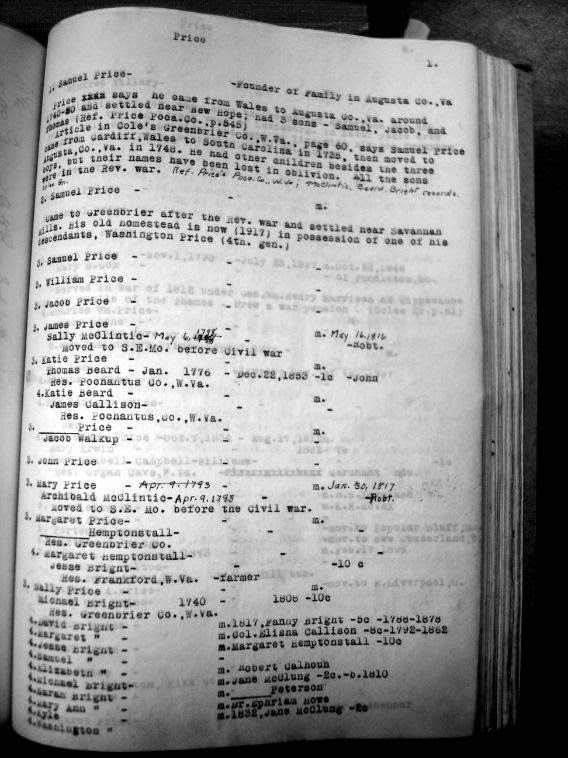 Price
1.
1. Samuel Price- -Founder of Family in Augusta Co.,Va
Price xxxx says he came from Wales to Augusta Co.,Va. around
1740-50 and settled near New Hope; had 3 sons - Samuel, Jacob, and
Thomas (Ref. Price Poca.Co.,p.545)
Article in Cole's Greenbrier Co,W.Va., page 60, says Samuel Price
came from Cardiff,Wales to South Carolina in 1735, then moved to
Augusta,Co.,Va. in 1748. He had other children besides the three
boys, but their names have been lost in oblivion. All the sons
were in the Rev. war. Ref. Price's Poca. Co., W.Va; McClintic, Beard, Bright records.
2. Samuel Price - - m.
Came to Greenbrier after the Rev. war and settled near Savannah
Mills. His old homestead is now (1917) in possession of one of his
descendants, Washington Price (4th. gen.)
3. Samuel Price - - -
3. William Price - - -
3. Jacob Price - - -
3. James Price - - m. May 16, 1816
Sally McClintic- May 6, 1798 - -Robt.
Moved to S.E.Mo. before Civil war
3. Katie Price - - m.
Thomas Beard - Jan. 1776 - Dec.22,1853 -1c -John
Res. Pochantus Co.,W.Va.
4.Katie Beard - - m.
James Callison- - -
Res. Pochantus,Co.,W.Va.
3. ______Price - - m.
Jacob Walkup - - -
3. John Price - - -
3. Mary Price - Apr. 9. 1793 - m. Jan. 30, 1817
Archibald McClintic-Apr. 9. 1793 - -Robt.
Moved to S.E. Mo. before the Civil war.
3. Margaret Price- - m.
______Hemptonstall- - -
Res. Greenbrier Co.
4. Margaret Hemptonstall- - -
Jesse Bright- - -10 c
Res. Frankford,W.Va. -farmer
3. Sally Price - - m.
Michael Bright- 1740 - 1808 -10c
Res. Greenbrier Co.,W.Va.
4.David Bright - m.1817,Fanny Bright -5c -1788-1878
4.Margaret " - m.Col.Elisha Callison -8c-1792-1862
4.Jesse Bright - m.Margaret Hemptonstall -10c
4.Samuel " -
4.Elizabeth " - m. Robert Calhoun
4.Michael Bright- m.Jane McClung -2c.-b.1810
4.Sarah Bright - m.______Peterson
4.Mary Ann " - m.Dr.Ephriam Rowe
4.Kyle - m.1832,Jane McClung -2c
4.Washington "